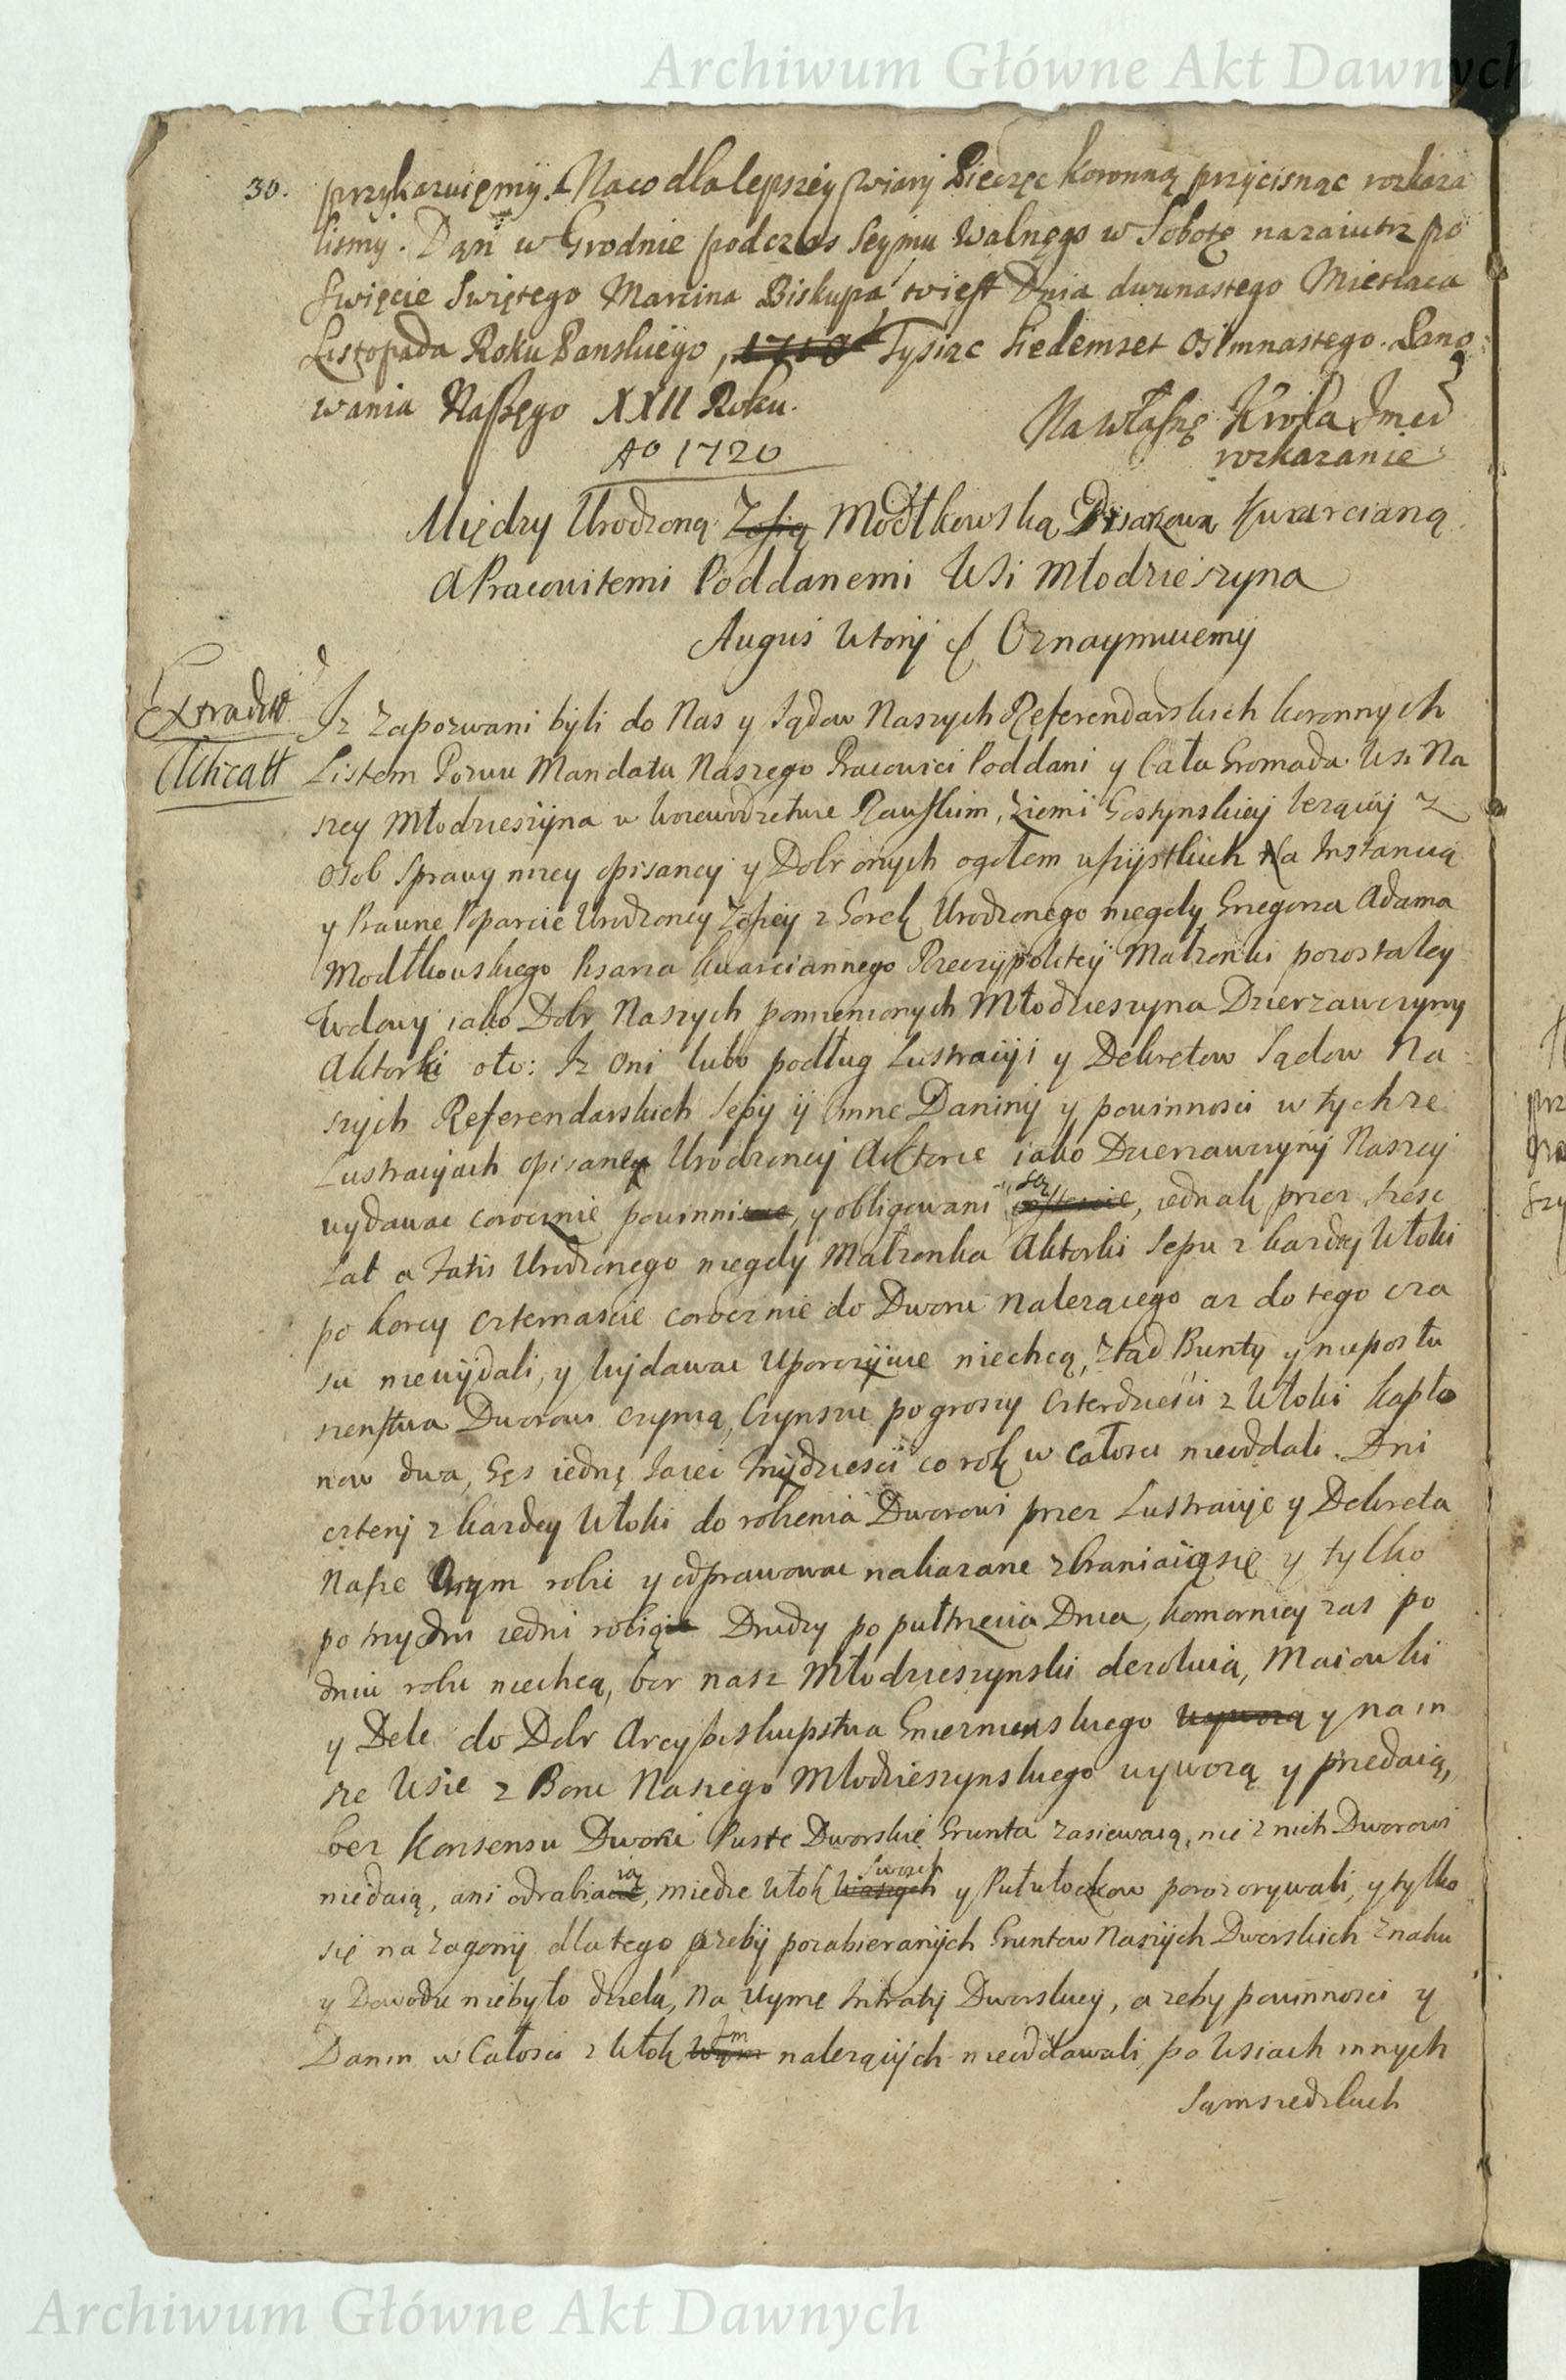 Archiwum Główne Akt Dawnych
30. przykazuięmÿ. Naco dla lepszeÿ wiarÿ Pieczęc koronną przÿcisnąc rozkaza
lismÿ. Dąn w Grodnie podczas Seÿmu Walnęgo w Sobotę nazaiutrz po
Swięcie Swiętego Marcina Biskupa to iest Dnia dwunastego Miesiaca
Listopada Roku Panskieÿo, 1718 Tysiąc Siedemset Osimnastego. Pano
wania Naszęgo XXII Roku.
Na własnę Krola Jmci
rozkazanie
Aº 1720
Między Urodzoną Zofią Modłkowską Pisarzową Kwarcianą
A Pracowitemi Poddanemi Wsi Młodzieszyna
Augus Wtorÿ & Oznaymuiemÿ
Extradit
Iz Zapozwani bÿli do Nas y Sądow Naszych Referendarskich koronnych
Listem Pozwu Mandatu Naszego Pracowici Poddani y Cała Gromada Wsi Na
szey Młodzieszÿna w Woiewodztwie Rawskim, Ziemi Gostynskieÿ lezącÿ z
osob sprawy nizey opisaney y Dobr onych ogołem wszÿstkich Na Instancią
y Prawne Poparcie Urodzoney Zofieÿ z Gorek Urodzonego niegdy Grzegorza Adama
Modłkowskiego Pisarza kwarciannego Rzeczÿpolitey Małzonki pozostałey
Wdowÿ iako Dobr Naszych pomienionych Młodzieszyna Dzierzawczyny
Aktorki oto: Iz oni lubo podług Lustracÿi y Dekretow Sądow Na
szÿch Referendarskich Sepÿ ÿ inne Daninÿ y powinnosci w tychze
Lustracÿach opisaney Urodzoneÿ Aktorce iako Dzierzawczynÿ Naszeÿ
wydawac corocznie powinni, y obligowani są, iednak przez szesc
Lat a Fatis Urodzonego niegdÿ Małzonka Aktorki Sepu z kazdeÿ Włoki
po korcy czternascie corocznie do Dworu nalezącego az do tego cza
su niewÿdali, y wÿdawac Uporczÿwie niechcą, ztąd Bunty y nieposłu
szenstwa Dworowi czynią, Czynszu po groszy czterdziesci z Włoki kapło
now dwa, Gęs iednę Jaiec trzÿdziesci co rok w całosci nieoddali. Dni
czterÿ z kazdey Włoki do robienia Dworowi przez Lustracÿe y Dekreta
Nasze onym robic y odprawowac nakazane zbraniaią się y tylko
po trzy dni iedni robią Drudzy po pułtrzecia Dnia, komornicy zas po
dniu robic niechcą, bor nasz Młodzieszynski dezoluią, Maiowki
y Dele do Dobr Arcybiskupstwa Gnieznienskiego wywozą y na in
sze Wsie z Boru Naszego Młodzieszynskiego wywozą y przedaią,
bez konsensu Dworu Puste Dworskie Grunta zasiewaią, nic z nich Dworowi
niedaią, ani odrabiaią, miedze Włok swoich y Pułwłoczkow porozorywali, y tylko
się na zagonÿ dlatego azebÿ pozabieranÿch Gruntow Naszÿch Dworskich znaku
y Dowodu niebyło dzielą, na Uymę Intratÿ Dworskiey, a zeby powinnosci y
Danin w Całosci z Włok Im nalezącÿch nieoddawali po Wsiach innych
Sąmsiedzkich
Archiwum Główne Akt Dawnych